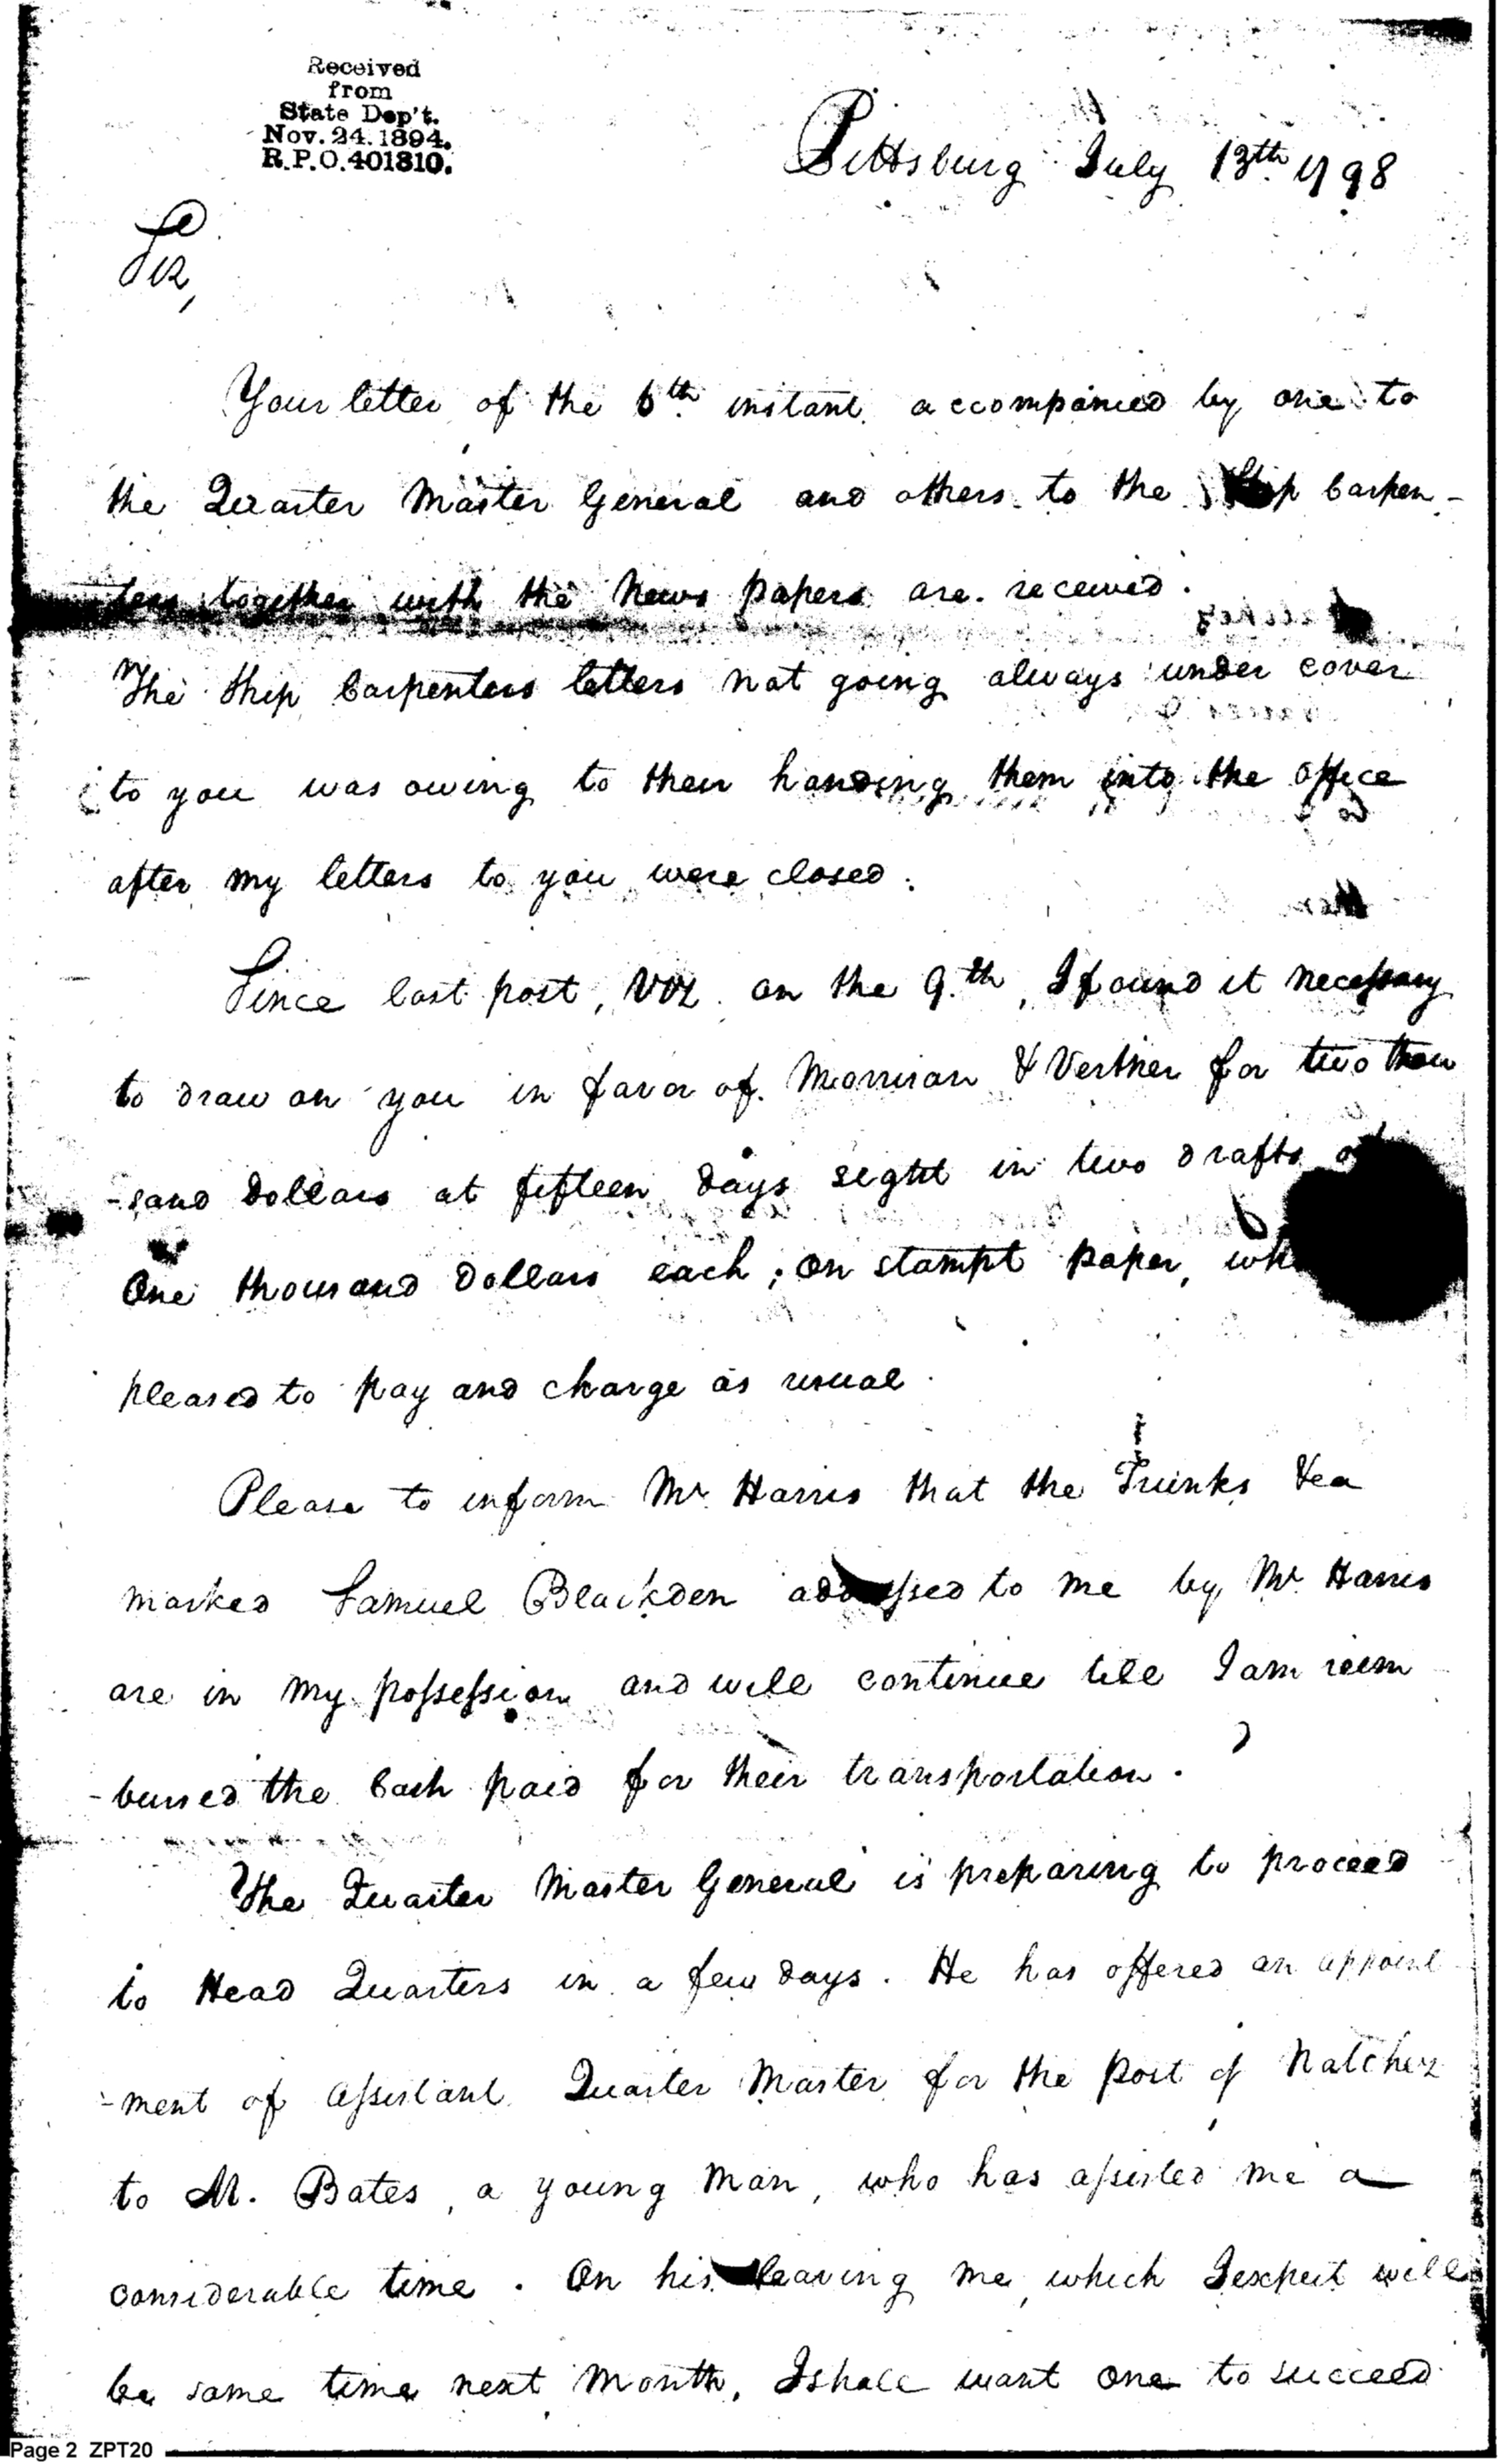 Received
from
State Dep't.
Nov. 24. 1894.
R.P.O. 401810.
Pittsburg July 13th. 1798
Sir,
Your letter of the 6th. instant. accompanied by one to
the Quarter Master General and others to the Ship Carpen-
ters together with the News papers are received.
The Ship Carpenters letters not going always under cover
to you was owing to their handing them into the office
after my letters to you were closed.
Since last post, viz. on the 9.th, I found it necessary
to draw on you in favor of Morrison & Vertner for two thou
-sand Dollars at fifteen days sight in two drafts of
One thousand Dollars each; on stampt paper,
pleased to pay and charge as usual.
Please to inform Mr. Harris that the Trunks &ca
marked Samuel Blackden addressed to me by Mr. Harris
are in my possession and will continue till I am reim
-bursed the Cash paid for their transportation.
The Quarter Master General is preparing to proceed
to Head Quarters in a few days. He has offered an appoint
-ment of assistant Quarter Master for the post of Natchez
to M. Bates, a young Man, who has assisted me a
considerable time. On his leaving me, which I expect will
be some time next Month, I shall want one to succeed
Page 2 ZPT20